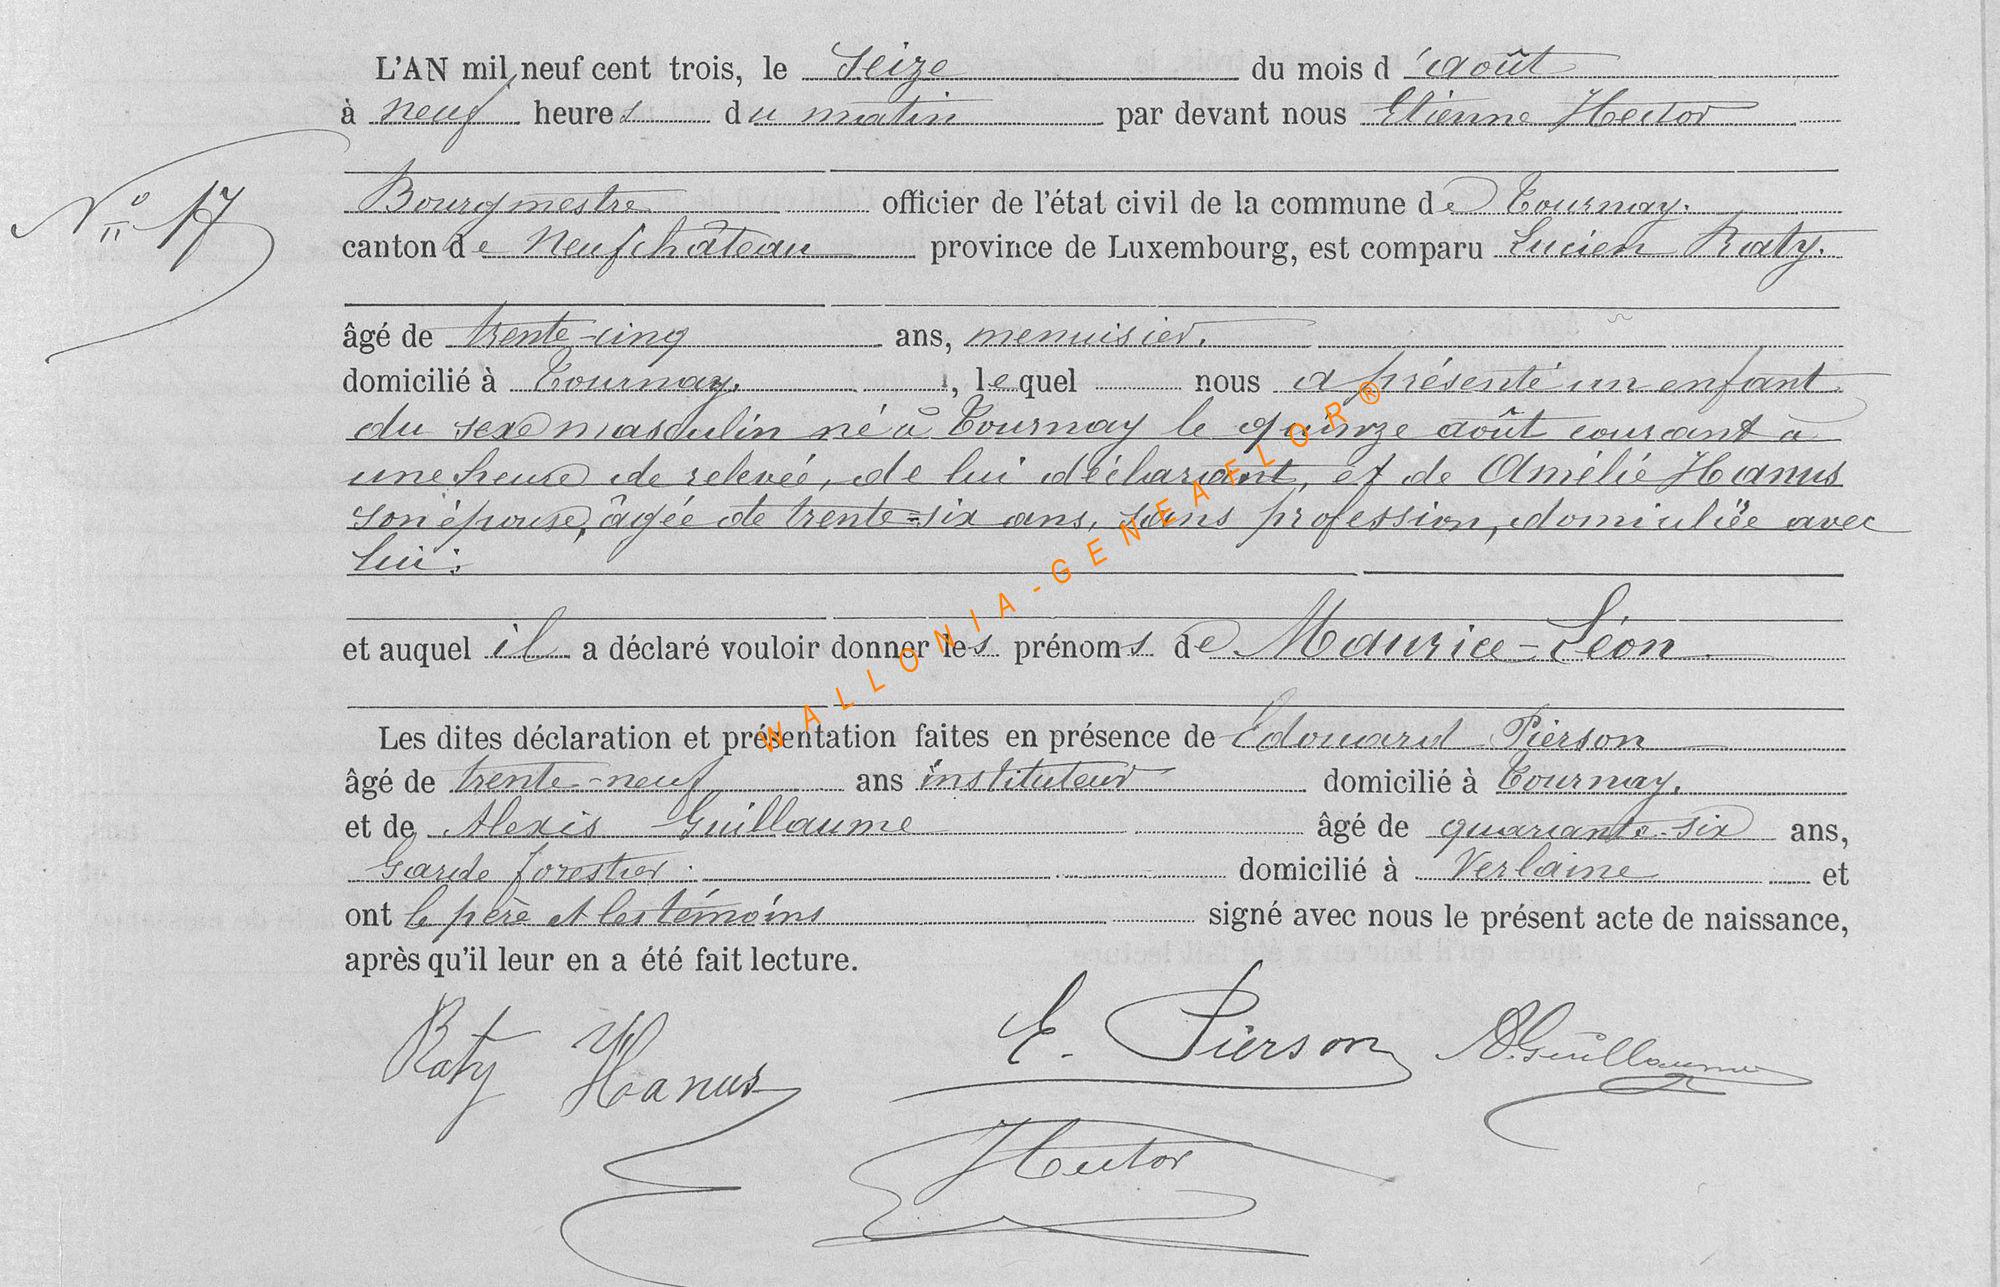 L'AN mil neuf cent trois, le seize du mois d'août
à neuf heures du matin par devant nous Etienne Hector
N° 17
Bourgmestre officier de l'état civil de la commune de Tournay.
canton de Neufchâteau province de Luxembourg, est comparu Lucien Raty.
âgé de trente-cinq ans, menuisier.
domicilié à Tournay. , lequel nous a présenté un enfant
du sexe masculin né à Tournay le quinze août courant à
une heure de relevée, de lui déclarant, et de Amélie Hanus
son épouse, âgée de trente-six ans, sans profession, domiciliée avec
lui;
et auquel il a déclaré vouloir donner les prénoms de Maurice-Léon
Les dites déclaration et présentation faites en présence de Edouard Pierson
âgé de trente-neuf ans instituteur domicilié à Tournay.
et de Alexis Guillaume âgé de quarante-six ans,
Garde forestier. domicilié à Verlaine et
ont le père et les témoins signé avec nous le présent acte de naissance,
après qu'il leur en a été fait lecture.
Raty Hanus E. Pierson A. Guillaume
Hector
WALLONIA-GENEAFLOR®